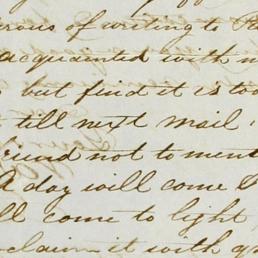 rous of writing to
acquainted with m
but find it is too
till next mail
riend not to ment
A day will come I
ll come to light
claim it with gr